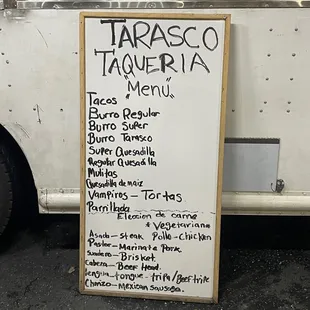 TARASCO
TAQUERIA
"Menu"
Tacos
Burro Regular
Burro Super
Burro Tarasco
Super Quesadilla
Regular Quesadilla
Mulitas
Quesadilla de maiz
Vampiros - Tortas
Parrillada
Eleccion de carne
* Vegetariana
Asada - steak Pollo - Chicken
Pastor - Marinate Pork
Suadero - Brisket
Cabeza - Beef Head.
lengua - tongue - tripa/Beef tripe
Chorizo - Mexican Sausage.